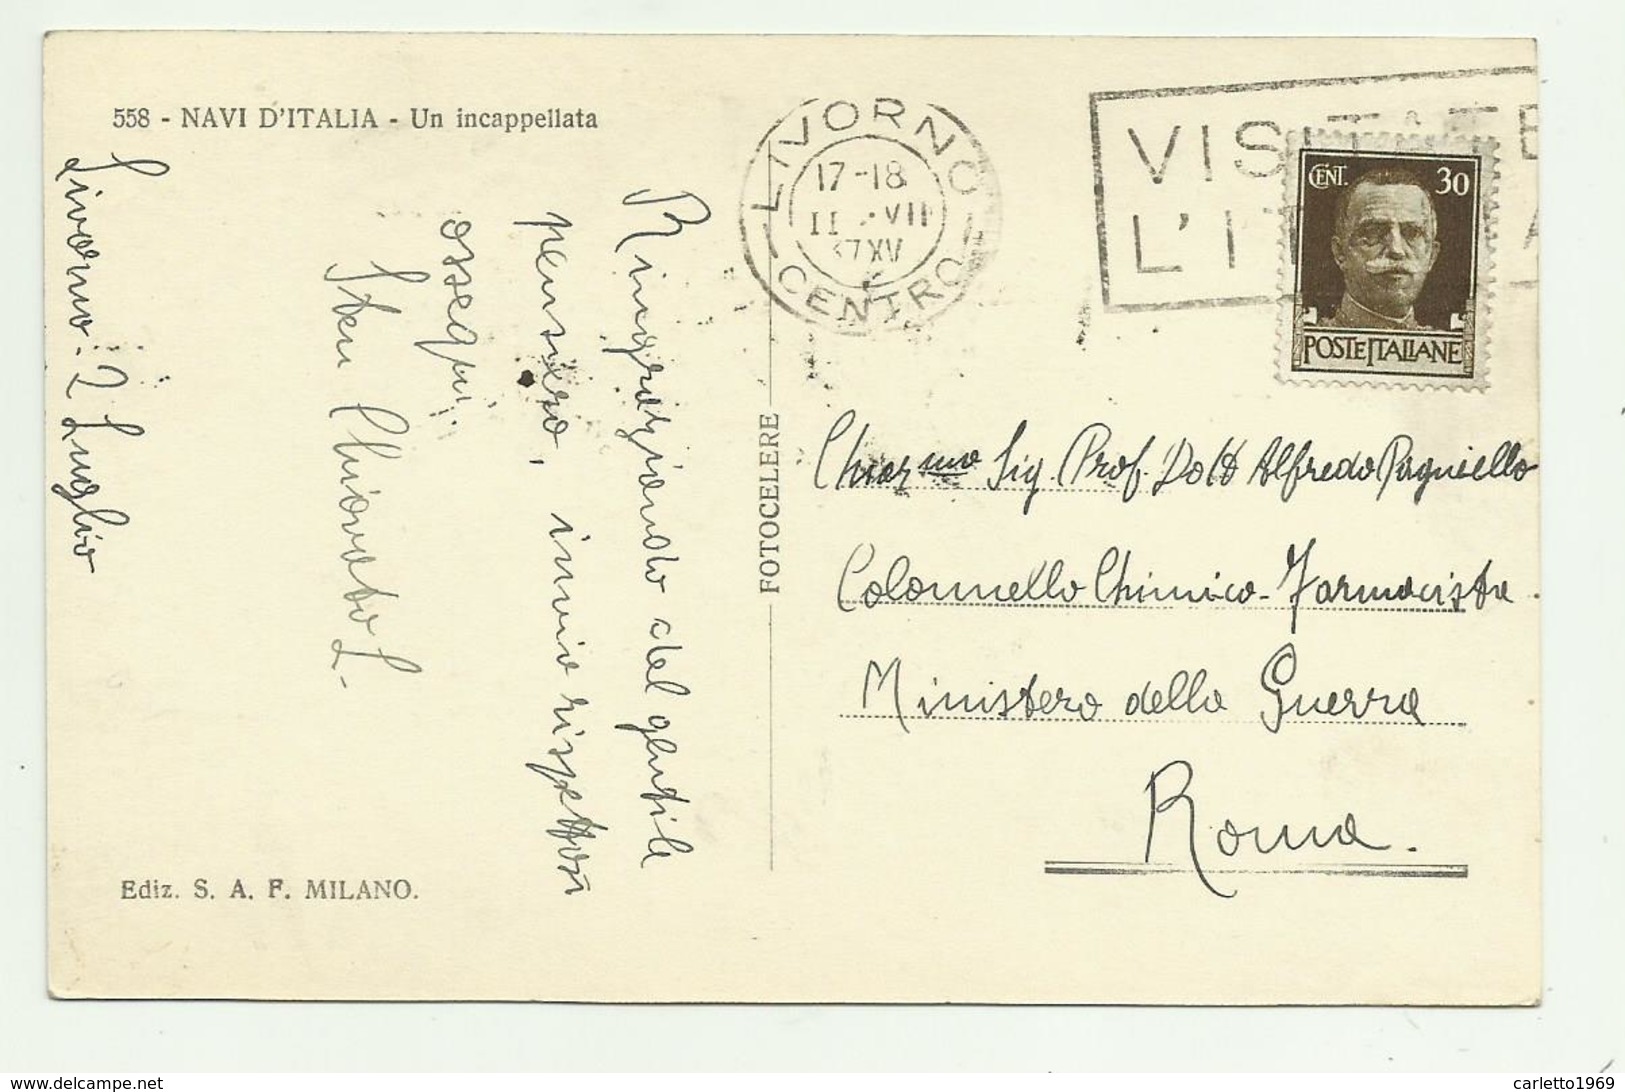 558 - NAVI D'ITALIA - Un incappellata
Livorno - 2 Luglio
Ringraziando del gentile
pensiero, invio rispettosi
ossequi.
Chiovato L.
Ediz. S. A. F. MILANO.
FOTOCELERE
LIVORNO
17-18
II VII
37 XV
CENTRO
VISITATE
L'IT A
CENT. 30
POSTE ITALIANE
Chiar.mo Sig. Prof. Dott Alfredo Pagniello
Colonnello Chimico - Farmacista
Ministero della Guerra
Roma.
carletto1969